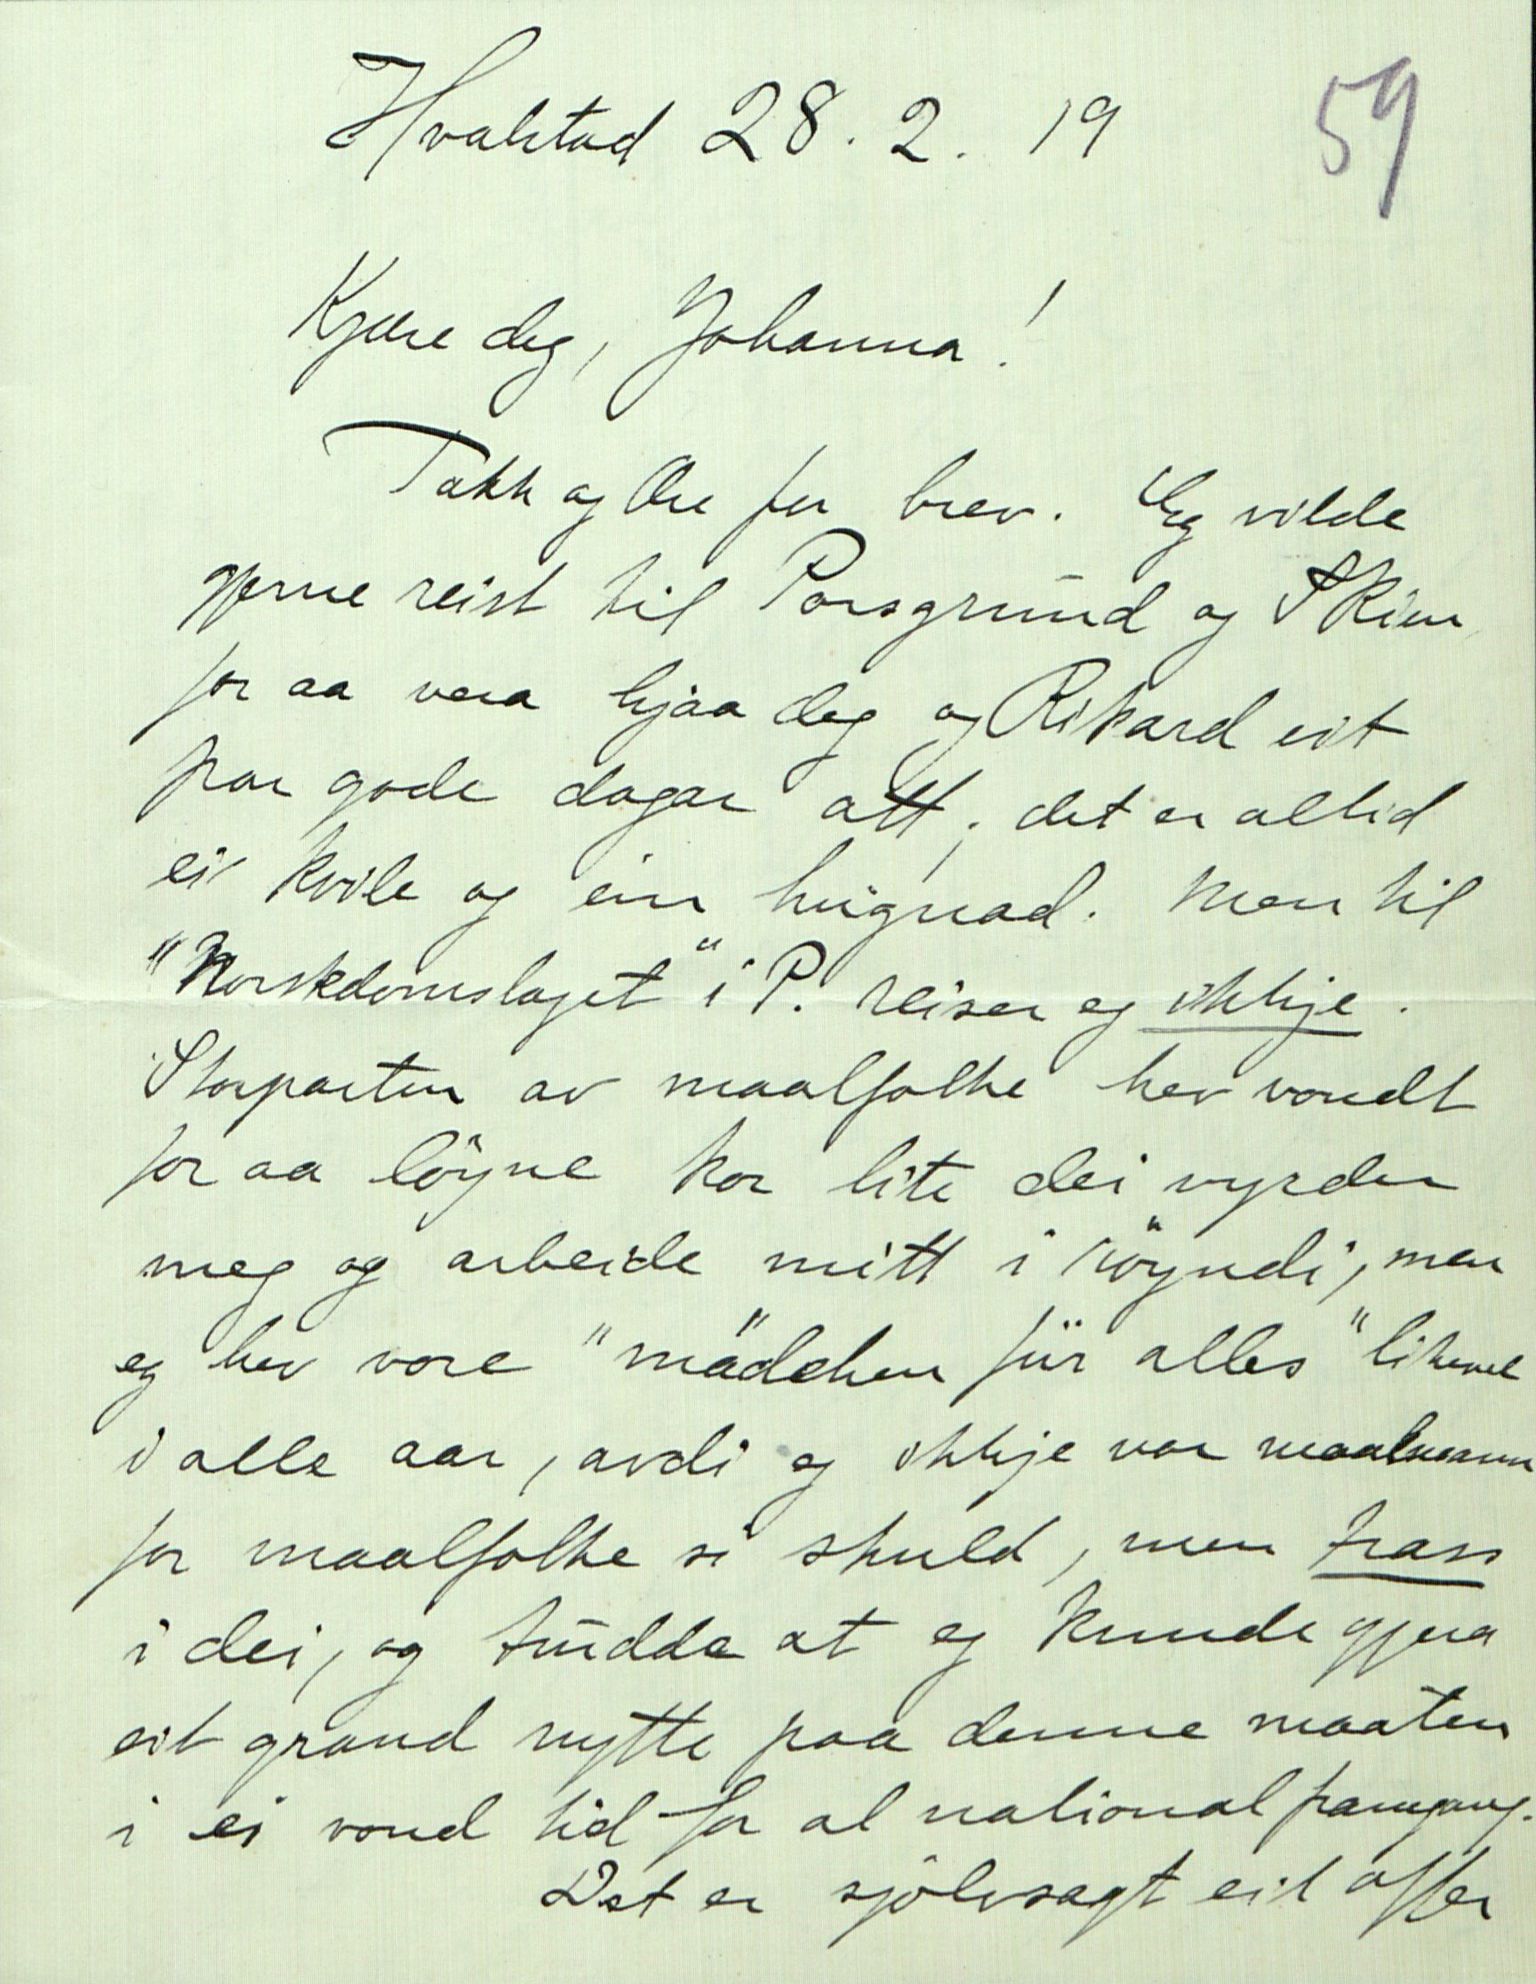 Hvalstad 28. 2. 19
59
Kjære deg, Johanna!
Takk og Ære for brev. Eg vilde
gjerne reist til Porsgrund og Skien
for aa vera hjaa deg og Rikard eit
par gode dagar att; det er altid
ei kvile og ein hugnad. Men til
"Norskdomslaget" i P. reiser eg ikkje.
Storparten av maalfolke hev vondt
for aa löyne kor lite dei vyrder
meg og arbeide mitt i röyndi, men
eg hev vore "mädchen für alles" likevel
i alle aar, avdi eg ikkje var maalmann
for maalfolke si skuld, men trass
i dei, og trudde at eg kunde gjera
eit grand nytte paa denne maaten
i ei vond tid for al national framgang.
Det er sjölvsagt eit offer